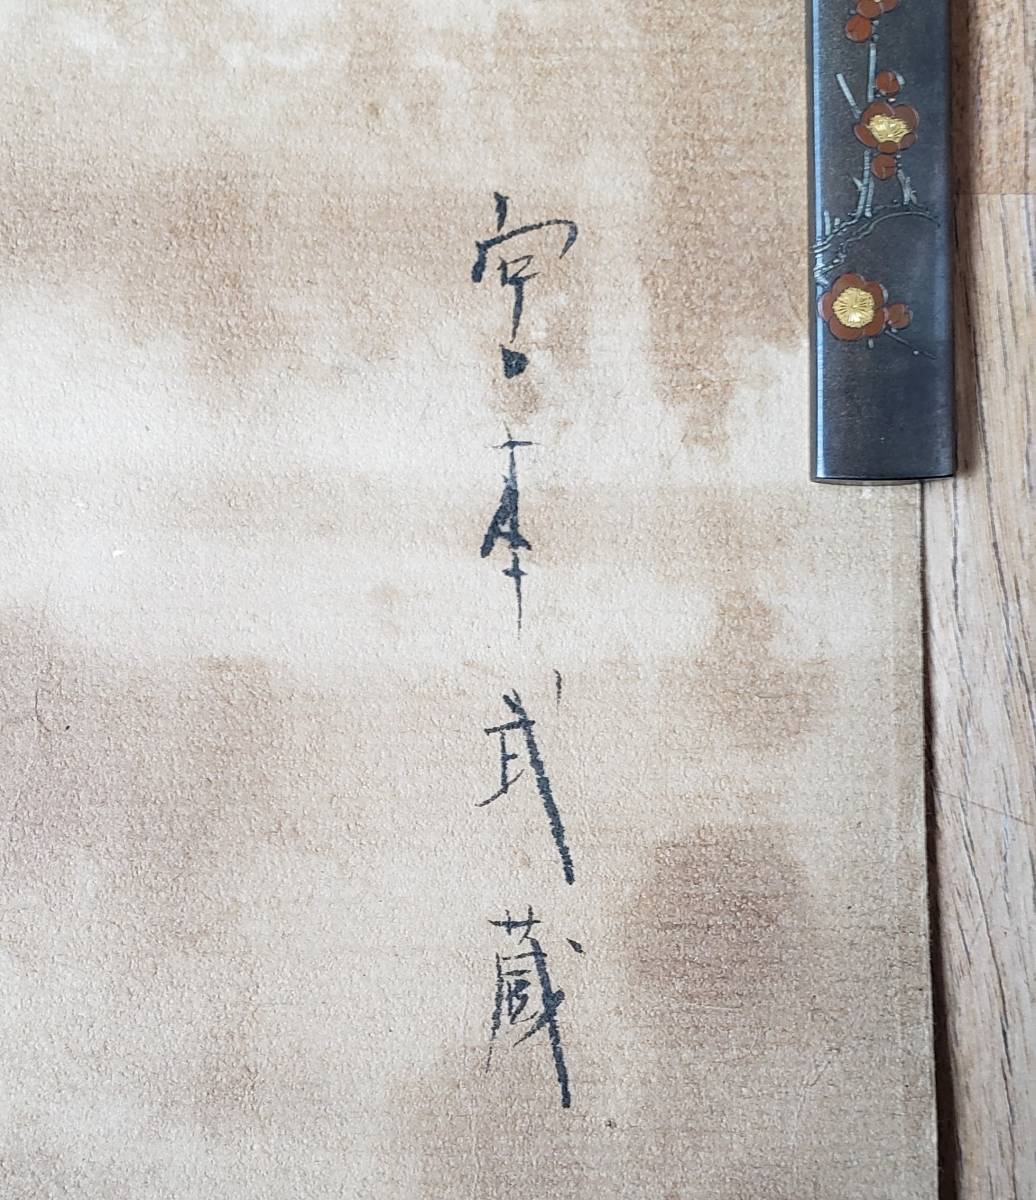 宮本武蔵